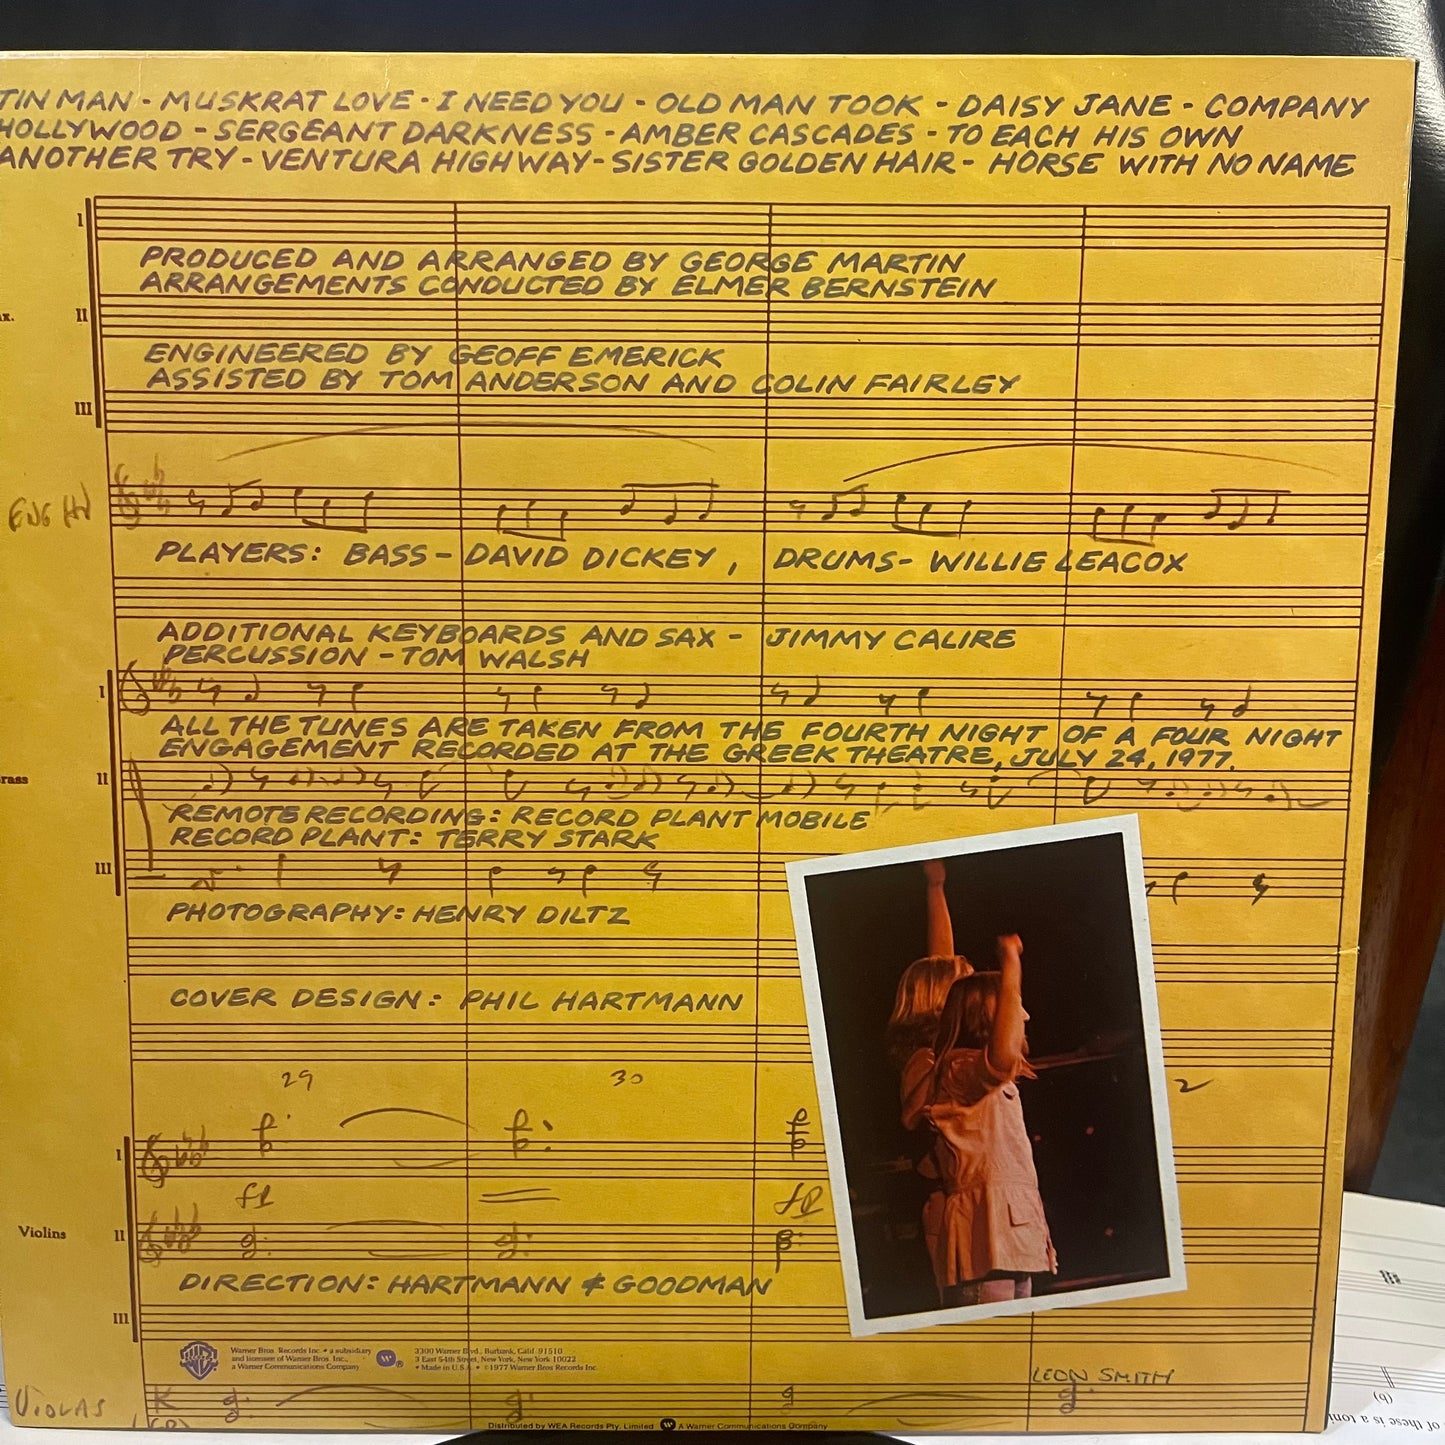 TIN MAN - MUSKRAT LOVE - I NEED YOU - OLD MAN TOOK - DAISY JANE - COMPANY
HOLLYWOOD - SERGEANT DARKNESS - AMBER CASCADES - TO EACH HIS OWN
ANOTHER TRY - VENTURA HIGHWAY - SISTER GOLDEN HAIR - HORSE WITH NO NAME
I
PRODUCED AND ARRANGED BY GEORGE MARTIN
ARRANGEMENTS CONDUCTED BY ELMER BERNSTEIN
II
ENGINEERED BY GEOFF EMERICK
ASSISTED BY TOM ANDERSON AND COLIN FAIRLEY
III
ENG HN
PLAYERS: BASS - DAVID DICKEY, DRUMS - WILLIE LEACOX
ADDITIONAL KEYBOARDS AND SAX - JIMMY CALIRE
PERCUSSION - TOM WALSH
I
ALL THE TUNES ARE TAKEN FROM THE FOURTH NIGHT OF A FOUR NIGHT
ENGAGEMENT RECORDED AT THE GREEK THEATRE, JULY 24, 1977.
rass II
REMOTE RECORDING: RECORD PLANT MOBILE
RECORD PLANT: TERRY STARK
III
PHOTOGRAPHY: HENRY DILTZ
COVER DESIGN: PHIL HARTMANN
29 30 2
I
Violins II
DIRECTION: HARTMANN & GOODMAN
III
Warner Bros. Records Inc. • a subsidiary
and licensee of Warner Bros. Inc.,
a Warner Communications Company
3300 Warner Blvd., Burbank, Calif. 91510
3 East 54th Street, New York, New York 10022
• Made in U.S.A. • ©1977 Warner Bros Records Inc.
LEON SMITH
VIOLAS
Distributed by WEA Records Pty. Limited A Warner Communications Company
(b)
of these is a toni